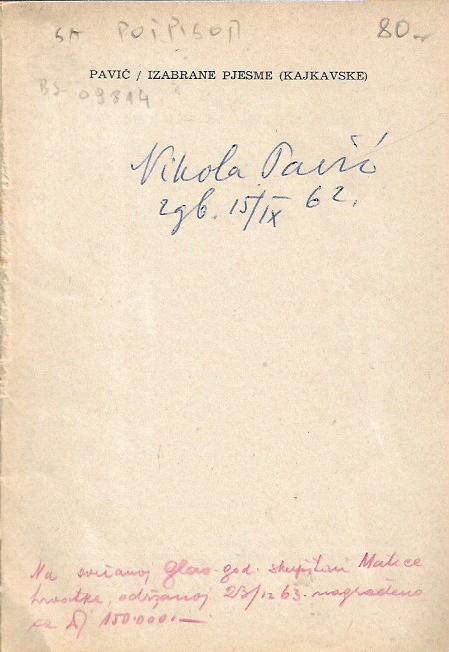 SA POTPISOM 80.-
PAVIĆ / IZABRANE PJESME (KAJKAVSKE)
BS-09814
Nikola Pavić
Zgb. 15/IX 62.
Na svečanoj glav. god. skupštini Matice
hrvatske, održanoj 23/12 63. nagrađeno
sa Dj 150.000.—